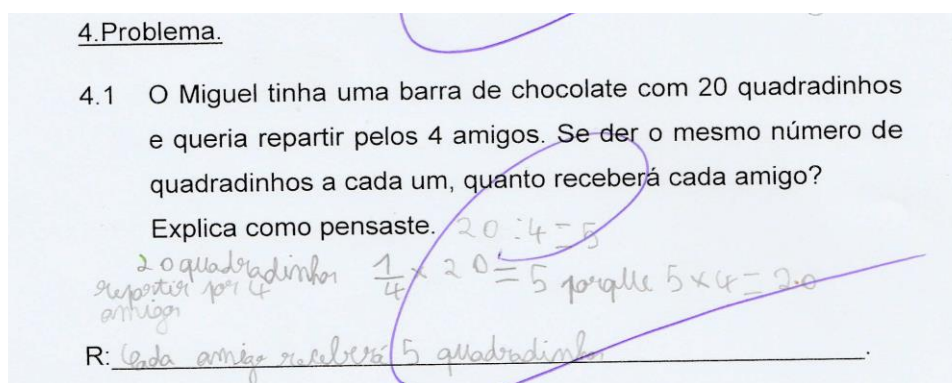 4.Problema.
4.1 O Miguel tinha uma barra de chocolate com 20 quadradinhos
e queria repartir pelos 4 amigos. Se der o mesmo número de
quadradinhos a cada um, quanto receberá cada amigo?
Explica como pensaste. 20:4=5
20 quadradinhos 1/4 x 20 = 5 porque 5x4=20
repartir por 4
amigos
R: Cada amigo receberá 5 quadradinhos.